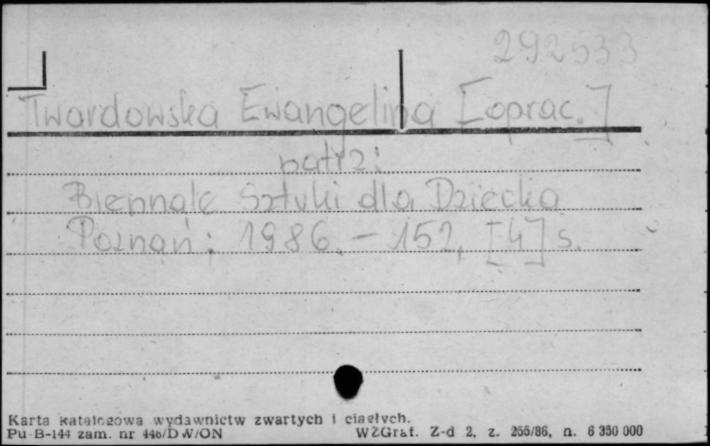 292533
Twardowska Ewangelina [oprac.]
patrz:
Biennale Sztuki dla Dziecka
Poznań: 1986. – 152, [4] s.
Karta katalogowa wydawnictw zwartych i ciągłych.
Pu-B-144 zam. nr 446/DW/ON WZGraf. Z-d 2, z. 255/86, n. 6 350 000